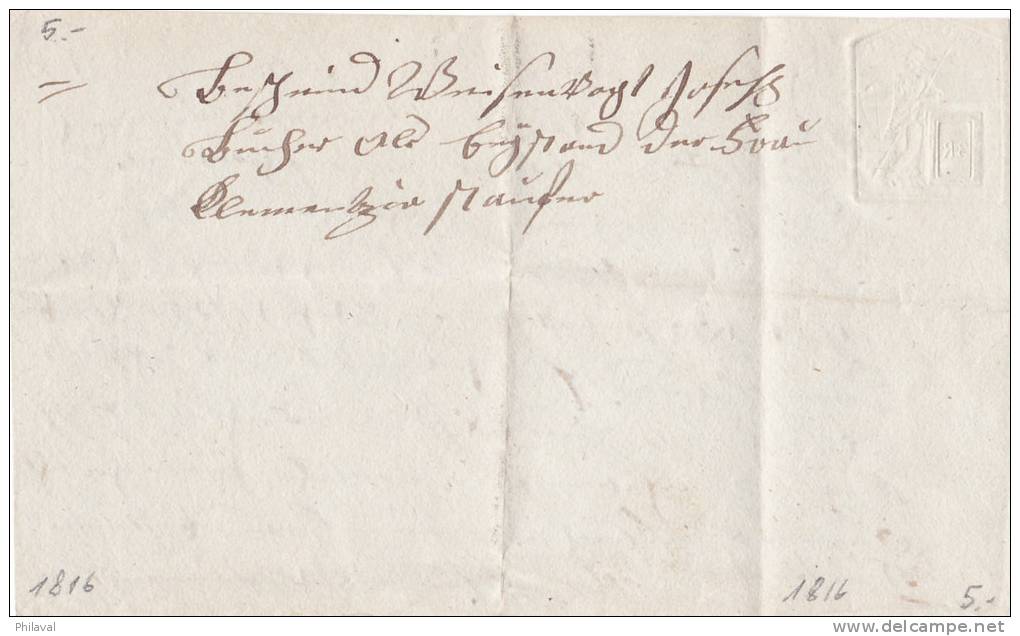 5.-
Bescheind Weisenvogt Joseph
Bucher als beÿstand der Frau
Klementzia stauffer
1816
1816
5.-
Philaval
www.delcampe.net